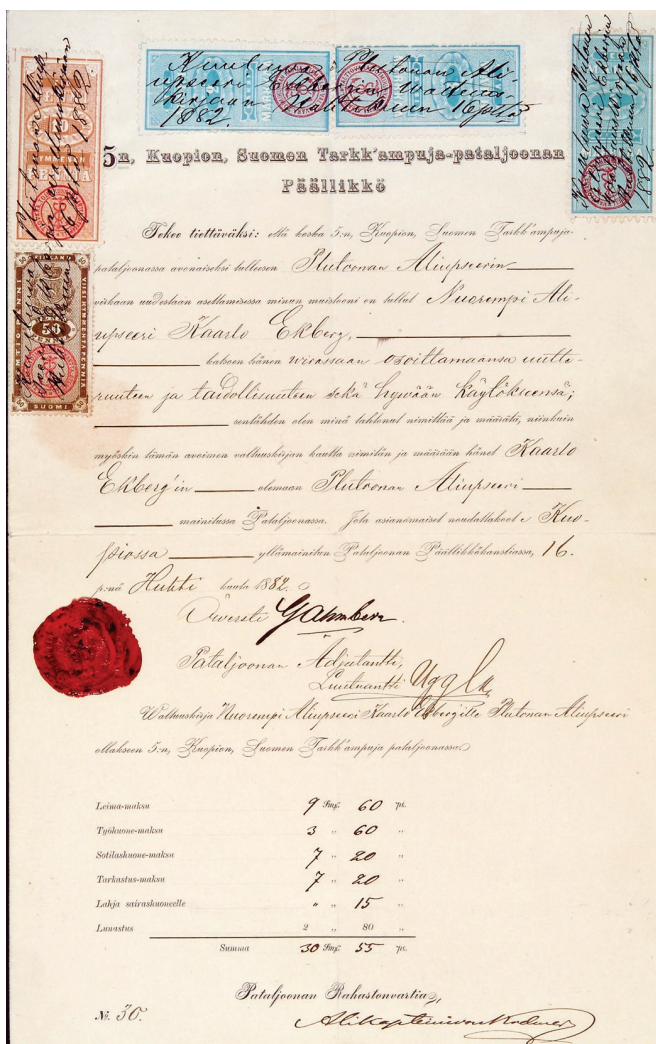 5n, Kuopion, Suomen Tarkk'ampuja-pataljoonan
Päällikkö
Tekee tiettäväksi: että koska 5:n, Kuopion, Suomen Tarkk'ampuja-
pataljoonassa avonaiseksi tulleesen Plutoonan Aliupseerin
virkaan uudestaan asettamisessa minun muistooni on tullut Nuorempi Ali-
upseeri Kaarlo Ekberg,
katsoen hänen wirassaan osoittamaansa uutte-
ruuteen ja taidollisuuteen sekä hywään käytökseensä;
sentähden olen minä tahtonut nimittää ja määrätä, niinkuin
myöskin tämän avoimen valtuuskirjan kautta nimitän ja määrään hänet Kaarlo
Ekberg'in olemaan Plutoonan Aliupseeri
mainitussa Pataljoonassa. Jota asianomaiset noudattakoot. Kuo-
piossa yllämainitun Pataljoonan Päällikkökansliassa, 16.
p:nä Huhti kuuta 1882.
Öwerste Gahmberg.
Pataljoonan Adjutantti,
Luutnantti Uggla
Waltuuskirja Nuorempi Aliupseeri Kaarlo Ekbergille Plutonan Aliupseeri
ollakseen 5:n, Kuopion, Suomen Tarkk'ampuja pataljoonassa.
Leima-maksu 9 Smg. 60 pi.
Työhuone-maksu 3 „ 60 „
Sotilashuone-maksu 7 „ 20 „
Tarkastus-maksu 7 „ 20 „
Lahja sairashuoneelle „ „ 15 „
Lunastus 2 „ 80 „
Summa 30 Smg. 55 pi.
Pataljoonan Rahastonvartia,
№. 30.
Alikapteeni
50
SUOMI
1882.
1882